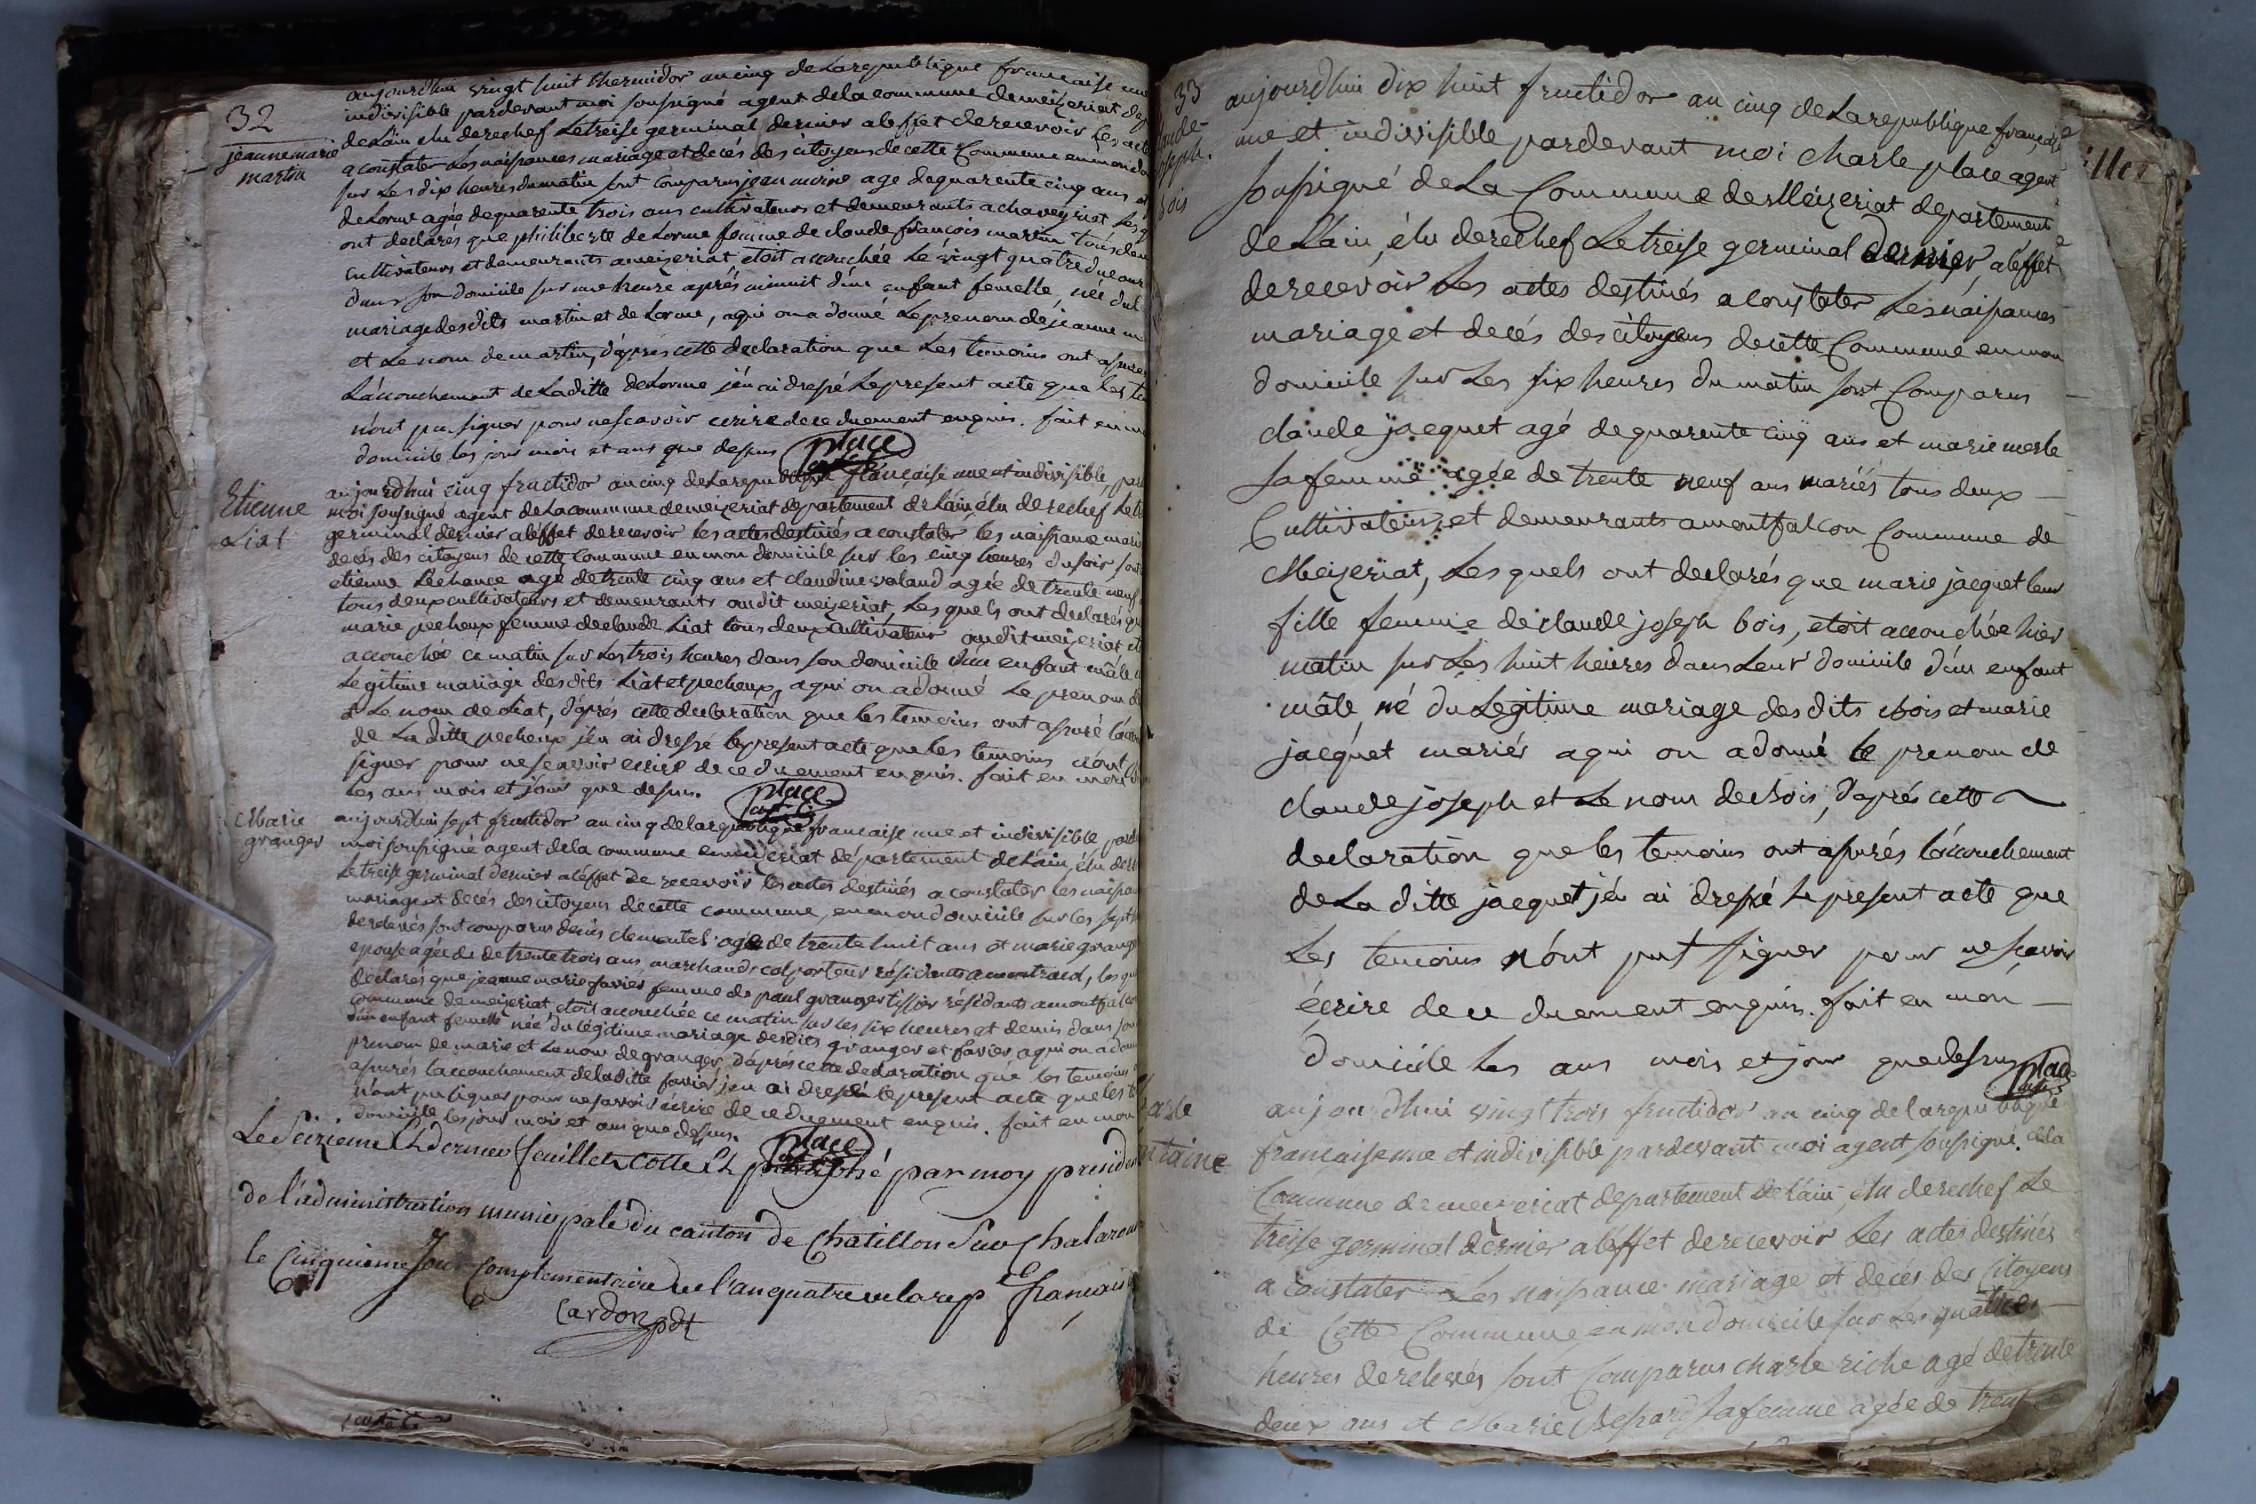 32
jeannemarie
martin
aujourdhui vingt huit thermidor an cinq de Larepublique francaise une
indivisible pardevant moi soussigné agent dela commune demeizeriat dep
de Lain elu derechef Letreise germinal dernier aleffet derecevoir Les acte
a constater Les naissances mariage et decés des citoyens de cette Commune enmon do
sur Les dix heures dumatin sont comparus jean moine age dequarente cinq ans
deLorme agée dequarente trois ans cultivateurs et demeurants a chaveyriat Lesq
ont declarés que philiberte de Lorme femme de claude françois martin tous deux
cultivateurs et demeurants ameizeriat etoit accouchée Le vingt quatre ducour
dans son domicile sur une heure aprés minuit d'un enfant femelle, née du l
mariage desdits martin et de Lorme, aqui on a donné Leprenom dejeanne m
et Le nom de martin, d'aprés cette declaration que Les temoins ont assurés
L'accouchement de Laditte deLorme j'en ai dressé Lepresent acte que les te
n'ont pu signer pour nescavoir ecrire de ce duement enquis. fait en mon
domicile les jour mois et ans que dessus place
Etienne
Liat
aujourdhui cinq fructidor an cinq deLarepublique francaise une et indivisible, par
moi soussigné agent deLacommune demeizeriat departement de Lain, élu derechef Letr
germinal dernier aleffet derecevoir les actes destinés a constater les naissance maria
decés des citoyens de cette Commune en mon domicile sur les cinq heures dusoir sont
etienne Léchance agé detrente cinq ans et claudine valand agée de trente neuf
tous deux cultivateurs et demeurants audit meizeriat, Lesquels ont declarés qu
marie pecheux femme declaude Liat tous deux cultivateur audit meizeriat et
accouchée ce matin sur Les trois heures dans son domicile d'un enfant mâle
Legitime mariage desdits Liat et pecheux, aqui on adonné Le prenom d
et Le nom de Liat, d'aprés cette declaration que les temoins ont assuré l'acc
de La ditte pecheux j'en ai dressé lepresent acte que les temoins n'ont
signer pour ne scavoir ecrire de ce duement enquis. fait en mon
les ans mois et jour que dessus. place
Marie
granger
aujourdhui sept fructidor an cinq delarepublique francaise une et indivisible parde
moi soussigné agent dela commune de meizeriat département de Lain, élu dere
Letreise germinal dernier aleffet de recevoir les actes destinés a constater les naissan
mariage et decés descitoyens decette commune, en mon domicile sur les sept
derelevés sont comparus denis clementel agé de trente huit ans et marie grange
epouse agée de detrente trois ans, marchands colporteur résidants amontraud, les qu
declarés que jeanne marie favier femme de paul granger tissier résidants amontfalcon
commune de meizeriat, etoit accouchée ce matin sur les six heures et demis dans son
d'un enfant femelle née du légitime mariage desdits granger et favier, aqui on adonn
prenom de marie et Lenom degranger, d'aprés cette declaration que les temoins
assurés laccouchement deladitte favier j'en ai dressé lepresent acte queles t
n'ont pu signer pour nesavoir écrire de ce duement enquis. fait en mon
domicile les jour mois et ans que dessus. place
Le seizieme et dernier feuillet cotté et paraphé par moy president
de l'administration municipale du canton de Chatillon sur Chalaronne
le Cinquieme Jour Complementaire de l'an quatre de la rep francaise
Cardon pdt
33
aude
oseph
bois
aujourdhui dix huit fructidor an cinq de Larepublique française
une et indivisible pardevant moi charle place agent
soussigné de La Commune de Meizeriat departement
de L'ain, élu derechef Letreise germinal dernier, aleffet
derecevoir Les actes destinés a constater Les naissances
mariage et decés des citoyens decette Commune en mon
domicile sur Les six heures du matin sont Comparus
claude jacquet agé dequarente cinq ans et marie merle
sa femme agée de trente neuf ans mariés tous deux
Cultivateurs, et demeurants amontfalcon Commune de
Meizeriat, Lesquels ont declarés que marie jacquet leur
fille femme de claude joseph bois, etoit accouchée hier
matin sur Les huit heures dans Leur domicile d'un enfant
mâle né du Legitime mariage desdits bois et marie
jacquet mariés aqui on adonné le prenom de
claude joseph et Le nom de bois, d'aprés cette
declaration que les temoins ont assurés l'accouchement
de La ditte jacquet j'en ai dressé le present acte que
Les temoins n'ont put signer pour nescavoir
écrire de ce duement enquis. fait en mon
domicile les ans mois et jour quedessus place
harle
ntaine
aujourdhui vingt trois fructidor an cinq de larepublique
francaise une et indivisible pardevant moi agent soussigné dela
Commune de meizeriat departement de Lain, élu derechef Le
treise germinal dernier aleffet derecevoir Les actes destinés
a constater Les naissance mariage et decés des Citoyens
de Cette Commune en mon domicile sur Les quatres
heures de relevés sont Comparus charle riche agé detrente
deux ans et Marie sa femme agée de trent